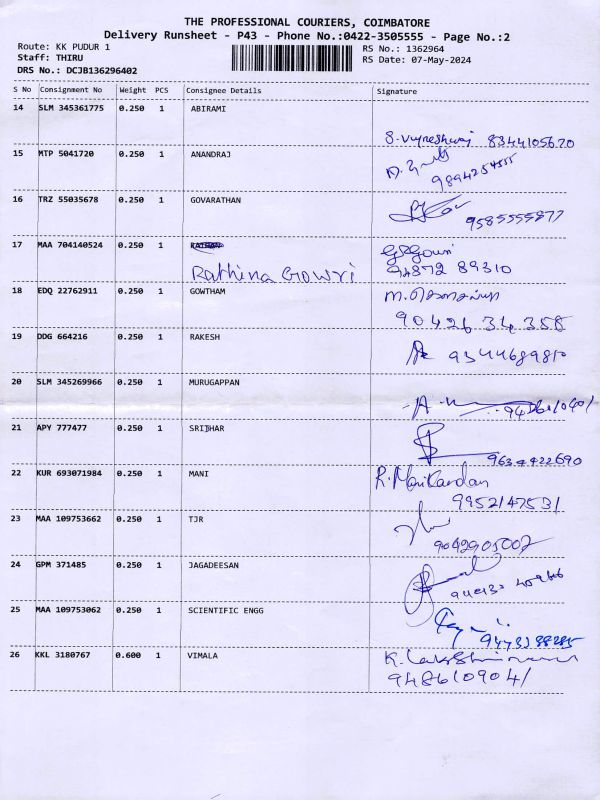 THE PROFESSIONAL COURIERS, COIMBATORE
Delivery Runsheet - P43 - Phone No.:0422-3505555 - Page No.:2
Route: KK PUDUR 1 RS No.: 1362964
Staff: THIRU RS Date: 07-May-2024
DRS No.: DCJB136296402
S No Consignment No Weight PCS Consignee Details Signature
14 SLM 345361775 0.250 1 ABIRAMI
8344105670
15 MTP 5041720 0.250 1 ANANDRAJ
16 TRZ 55035678 0.250 1 GOVARATHAN
9585555877
17 MAA 704140524 0.250 1
Rathina Gowri 94872 89310
18 EDQ 22762911 0.250 1 GOWTHAM
90426 34 358
19 DDG 664216 0.250 1 RAKESH
20 SLM 345269966 0.250 1 MURUGAPPAN
21 APY 777477 0.250 1 SRIDHAR
9634422690
22 KUR 693071984 0.250 1 MANI R. Manikandan
9952147531
23 MAA 109753662 0.250 1 TJR
24 GPM 371485 0.250 1 JAGADEESAN
25 MAA 109753062 0.250 1 SCIENTIFIC ENGG
26 KKL 3180767 0.600 1 VIMALA
9486109041